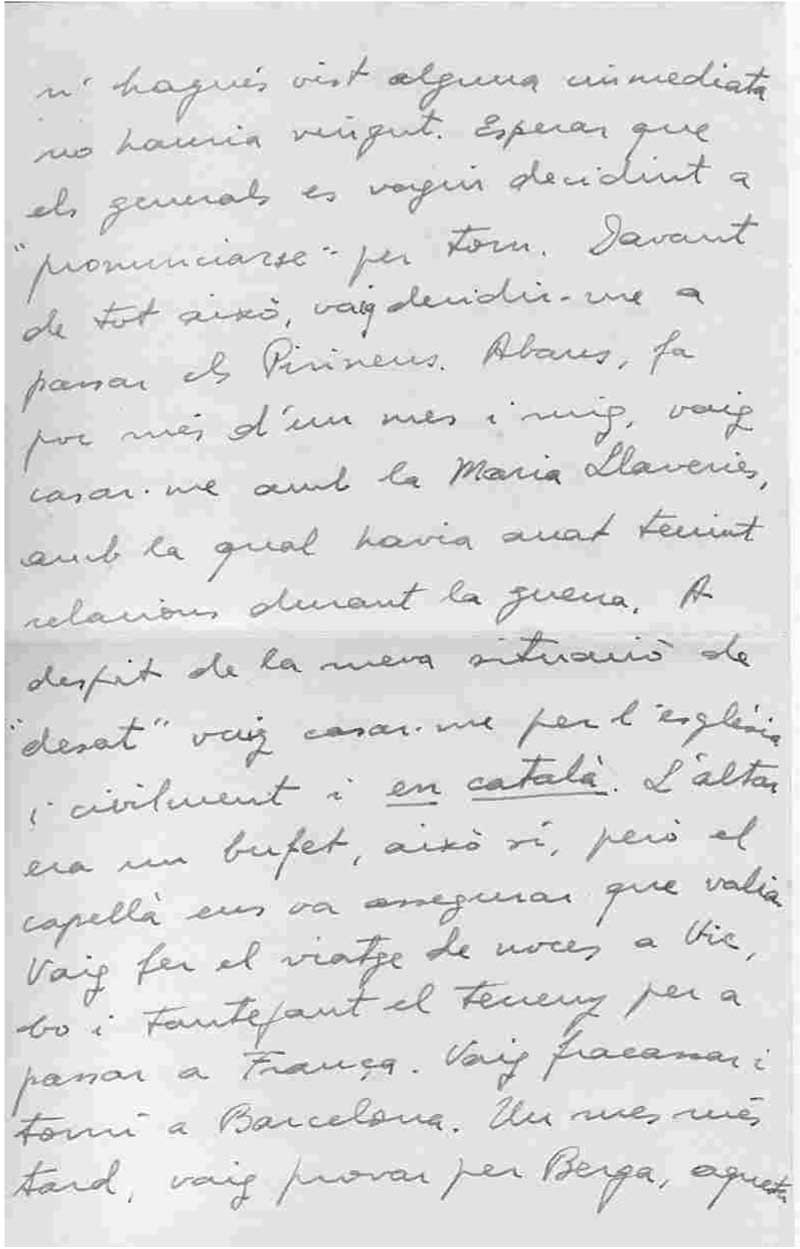 n'hagués vist alguna immediata
no hauria vingut. Esperar que
els generals es vagin decidint a
"pronunciarse" per torn. Davant
de tot això, vaig decidir-me a
passar els Pirineus. Abans, fa
poc més d'un mes i mig, vaig
casar-me amb la Maria Llaveries,
amb la qual havia anat tenint
relacions durant la guerra. A
despit de la meva situació de
"desat" vaig casar-me per l'església
i civilment i en català. L'altar
era un bufet, això sí, però el
capellà ens va assegurar que valia.
Vaig fer el viatge de noces a Vic,
bo i tantejant el terreny per a
passar a França. Vaig fracassar i
torní a Barcelona. Un mes més
tard, vaig provar per Berga, aquesta